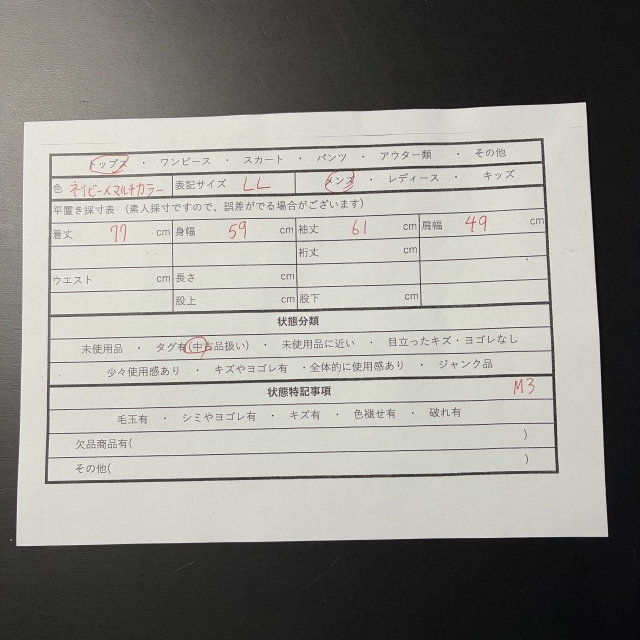 トップス ・ ワンピース ・ スカート ・ パンツ ・ アウター類 ・ その他
色 ネイビー×マルチカラー 表記サイズ LL メンズ ・ レディース ・ キッズ
平置き採寸表 (素人採寸ですので、誤差がでる場合がございます)
着丈 77 cm 身幅 59 cm 袖丈 61 cm 肩幅 49 cm
裄丈 cm
ウエスト cm 長さ cm
股上 cm 股下 cm
状態分類
未使用品 ・ タグ有(中古品扱い) ・ 未使用品に近い ・ 目立ったキズ・ヨゴレなし
少々使用感あり ・ キズやヨゴレ有 ・全体的に使用感あり ・ ジャンク品
状態特記事項 M3
毛玉有 ・ シミやヨゴレ有 ・ キズ有 ・ 色褪せ有 ・ 破れ有
欠品商品有( )
その他( )